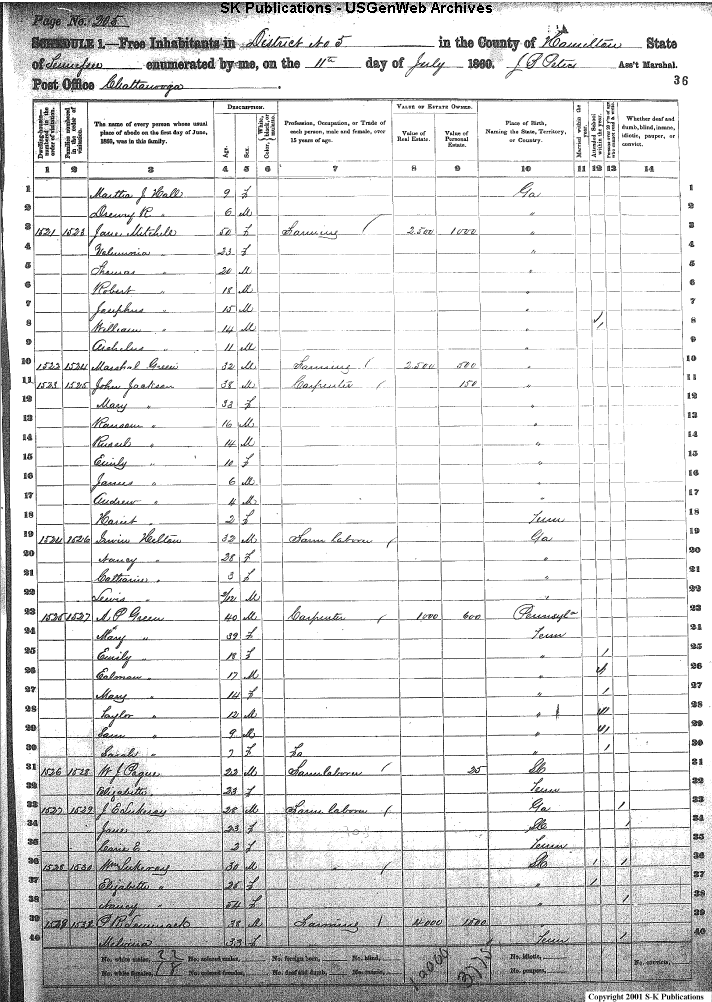 SK Publications - USGenWeb Archives
Page No. 205
SCHEDULE 1.—Free Inhabitants in District No 5 in the County of Hamilton State
of Tennessee enumerated by me, on the 11th day of July 1860. Ass't Marshal.
Post Office Chattanooga.
36
DESCRIPTION. VALUE OF ESTATE OWNED.
Dwelling-houses—numbered in the order of visitation. Families numbered in the order of visitation. The name of every person whose usual place of abode on the first day of June, 1860, was in this family. Age. Sex. Color, White, black, or mulatto. Profession, Occupation, or Trade of each person, male and female, over 15 years of age. Value of Real Estate. Value of Personal Estate. Place of Birth, Naming the State, Territory, or Country. Married within the year. Attended School within the year. Persons over 20 y'rs of age who cannot read & write. Whether deaf and dumb, blind, insane, idiotic, pauper, or convict.
1 2 3 4 5 6 7 8 9 10 11 12 13 14
1 Martha J Hall 9 f Ga 1
2 Drewry R " 6 M " 2
3 1521 1523 Jane Mitchell 50 f Farming 2,500 1000 " 3
4 " 23 f " 4
5 Thomas " 20 M " 5
6 Robert " 18 M " 6
7 Josephus " 15 M " 7
8 William " 14 M " / 8
9 " 11 M " 9
10 1522 1524 Marshal Green 32 M Farming 2,500 500 " 10
11 1523 1525 John Jackson 38 M Carpenter 150 " 11
12 Mary " 33 f " 12
13 Ransom " 16 M " 13
14 Russel " 14 M " 14
15 Emily " 10 f " 15
16 James " 6 M " 16
17 Andrew " 4 M " 17
18 " 2 f Tenn 18
19 1524 1526 Irwin Helton 32 M Farm laborer Ga 19
20 Nancy " 28 f " 20
21 Catharine " 3 f " 21
22 Lewis " M " 22
23 1525 1527 A. P Green 40 M Carpenter 1000 600 Pennsyla 23
24 Mary " 39 f Tenn 24
25 Emily " 18 f " / 25
26 " 17 M " / 26
27 Mary " 14 f " / 27
28 Taylor " 12 M " / 28
29 Sam " 9 M " / 29
30 Sarah " 7 f " / 30
31 1526 1528 W. J Pogue 22 M Farm laborer 25 31
32 Elizabeth " 23 f Tenn 32
33 1527 1529 J E 28 M Farm laborer Ga / 33
34 Jane " 23 f / 34
35 E. " 2 f Tenn 35
36 1528 1530 Wm 30 M " / / 36
37 Elizabeth " 28 f " / 37
38 Nancy " 54 f " / 38
39 38 M Farming 4000 1500 " 39
40 33 f Tenn / 40
No. white males, 22 No. colored males, No. foreign born, No. blind, No. idiotic, No. convicts,
No. white females, 18 No. colored females, No. deaf and dumb, No. insane, 12000 3775 No. paupers,
Copyright 2001 S-K Publications